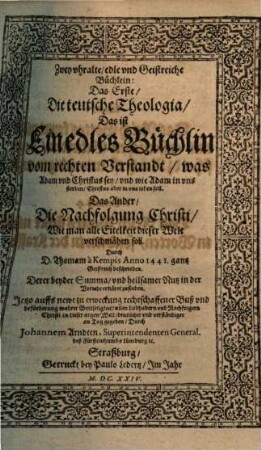 Zwey vhralte/ edle vnd Geistreiche
Büchlein:
Das Erste/
Die teutsche Theologia/
Das ist
Ein edles Büchlin
vom rechten Verstandt/ was
Adam vnd Christus sey/ vnd wie Adam in vns
sterben/ Christus aber in vns leben soll.
Das Ander/
Die Nachfolgung Christi/
Wie man alle Eitelkeit dieser Welt
verschmähen soll.
Durch
D. Thomam à Kempis Anno 1441. gantz
Geistreich beschrieben.
Derer beyder Summa/ vnd heilsamer Nutz in der
Vorrede erkläret
Jetzo auffs newe zu erweckung rechtschaffener Buß vnd
beförderung wahrer Gottseligkeit allen Liebhabern vnd Nachfolgern
Christi in dieser argen Welt/ deutlicher vnd verständiger
an Tag gegeben/ Durch
Johannem Arndten, Superintendenten General.
deß Fürstenthumbs Lüneburg ꝛc.
Straßburg/
Getruckt bey Paulo Ledertz/ Im Jahr
M. DC. XXIV.